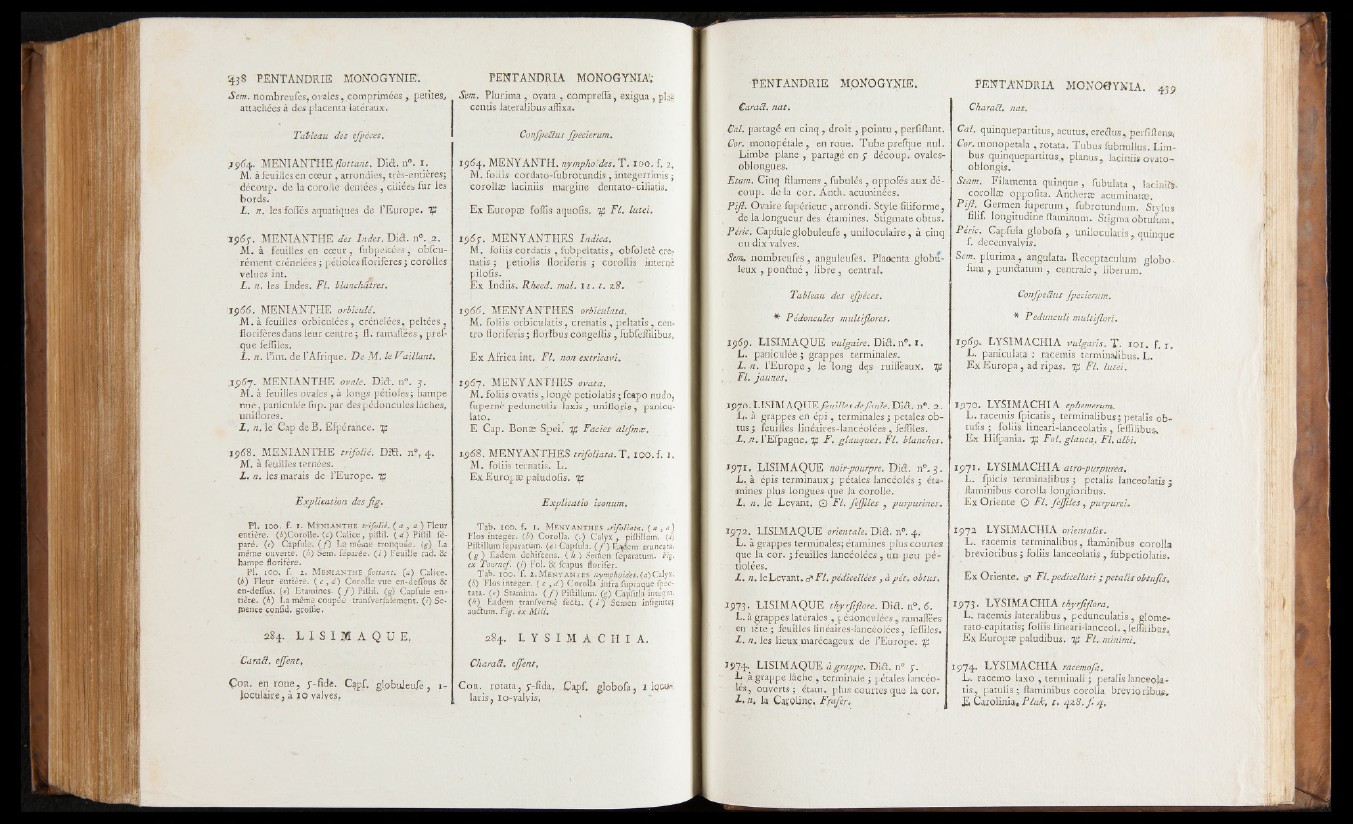 438 PENTANDRIE MONOGYNIE.
Sem. nombreuſes, ovales, comprimées, petites,
attachées à des placenta latéraux.
Tableau des eſpèces.
1964. MENIANTHE flottant. Dict. n°. 1.
M. à feuilles en cœur, arrondies, très-entières;
découp. de la corolle dentées, ciliées ſur les
bords.
L. n. les foſſés aquatiques de l'Europe. ♃
1965. MENIANTHE des Indes. Dict. n°. 2.
M. à feuilles en cœur, ſubpeltées, obſcu-
rément crénelées; pétioles floriferes; corolles
velues int.
L. n. les Indes. Fl. blanchâtres.
1966. MENIANTHE orbiculé.
M. à feuilles orbiculées, crénelées, peltées,
floriferes dans leur centre; fl. ramaſſées, preſ-
que ſeſſiles.
L. n. l'int. de l'Afrique. De M. le Vaillant.
1967. MENIANTHE ovale. Dict. n°. 3.
M. à feuilles ovales, à longs pétioles; hampe
nue, paniculée ſup. par des pédoncules lâches,
uniflores.
L. n. le Cap de B. Eſpérance. ♃
1968. MENIANTHE trifolié. Dict. n°. 4.
M. à feuilles ternées.
L. n. les marais de l'Europe. ♃
Explication des fig.
Pl. 100. f. 1. MENIANTHE trifolié. (a, a) Fleur
entière. (b) Corolle. (c) Calice, piſtil. (d) Piſtil ſé-
paré. (e) Capſule. (f) La même tronquée. (g) La
même ouverte. (h) Sem. ſéparée. (i) Feuille rad. &
hampe florifère.
Pl. 100. f. 2. MENIANTHE flottant. (a) Calice.
(b) Fleur entière. (c, d) Corolle vue en-deſſous &
en-deſſus. (e) Etamines. (f) Piſtil. (g) Capſule en-
tière. (h) La même coupée tranſverſalement. (i) Se-
mence conſid. groſſie.
284. LISIMAQUE.
Caract. eſſent.
COR. en roue, 5-fide. Capſ. globuleuſe, 1-
loculaire, à 10 valves.
PENTANDRIA MONOGYNIA.
Sem. Plurima, ovata, compreſſa, exigua, pla-
centis lateralibus affixa.
Conſpectus ſpecierum.
1964. MENYANTH. nymphoides. T. 100. f. 2.
M. foliis cordato-ſubrotundis, integerrimis;
corollæ laciniis margine dentato-ciliatis.
Ex Europæ foſſis aquoſis. ♃ Fl. lutei.
1965. MENYANTHES Indica.
M. foliis cordatis, ſubpeltatis, obſoletè cre-
natis; petiolis floriferis; corollis internè
piloſis.
Ex Indiis. Rheed. mal. 11. t. 28.
1966. MENYANTHES orbiculata.
M. foliis orbiculatis, crenatis, peltatis, cen-
tro floriferis; floribus congeſtis, ſubſeſſilibus.
Ex Africa int. Fl. non extricavi.
1967. MENYANTHES ovata.
M. foliis ovatis, longè petiolatis; ſcapo nudo,
ſupernè pedunculis laxis, unifloris, panicu-
lato.
E Cap. Bonæ Spei. ♃ Facies aliſmæ.
1968. MENYANTHES trifoliata. T. 100. f. 1.
M. foliis ternatis. L.
Ex Europæ paludoſis. ♃
Explicatio iconum.
Tab. 100. f. 1. MENYANTHES trifoliata. (a, a)
Flos integer. (b) Corolla. (c) Calyx, piſtillum. (d)
Piſtillum ſeparatum. (e) Capſula. (f) Eadem truncata.
(g) Eadem dehiſcens. (h) Semen ſeparatum. Fig.
ex Tournef. (i) Fol. & ſcapus florifer.
Tab. 100. f. 2. MENYANTES nymphoides. (a) Calyx.
(b) Flos integer. (c, d) Corolla infra ſupraque ſpec-
tata. (e) Stamina. (f) Piſtillum. (g) Capſula integra.
(h) Eadem tranſversè ſecta. (i) Semen inſigniter
auctum. Fig. ex Mill.
284. LYSIMACHIA.
Charact. eſſent.
COR. rotata, 5-fida. Capſ. globoſa, 1 locu-
laris, 10-valvis.
PENTANDRIE MONOGYNIE.
Caract. nat.
Cal. partagé en cinq, droit, pointu, perſiſtant.
Cor. monopétale, en roue. Tube preſque nul.
Limbe plane, partagé en 5 découp. ovales-
oblongues.
Etam. Cinq filamens, ſubulés, oppoſés aux dé-
coup. de la cor. Anth. acuminées.
Piſt. Ovaire ſupérieur, arrondi. Style filiforme,
de la longueur des étamines. Stigmate obtus.
Péric. Capſule globuleuſe, uniloculaire, à cinq
ou dix valves.
Sem. nombreuſes, anguleuſes. Placenta globu-
leux, ponctué, libre, central.
Tableau des eſpèces.
* Pédoncules multiflores.
1969. LISIMAQUE vulgaire. Dict. n°. 1.
L. paniculée; grappes terminales.
L. n. l'Europe, le long des ruiſſeaux. ♃
Fl. jaunes.
1970. LISIMAQUE feuilles de ſaule. Dict. n°. 2.
L. à grappes en épi, terminales; petales ob-
tus; feuilles linéaires-lancéolées, ſeſſiles.
L. n. l'Eſpagne. ♃ F. glauques. Fl. blanches.
1971. LISIMAQUE noir-pourpre. Dict. n°. 3.
L. à épis terminaux; pétales lancéolés; éta-
mines plus longues que la corolle.
L. n. le Levant. ☉ Fl. ſeſſiles, purpurines.
1972. LISIMAQUE orientale. Dict. n°. 4.
L. à grappes terminales; étamines plus courtes
que la cor.; feuilles lancéolées, un peu pé-
tiolées.
L. n. le Levant. ♂ Fl. pédicellées, à pét. obtus.
1973. LISIMAQUE thyrſiflore. Dict. n°. 6.
L. à grappes latérales, pédonculées, ramaſſées
en tête; feuilles linéaires-lancéolées, ſeſſiles.
L. n. les lieux marécageux de l'Europe. ♃
1974. LISIMAQUE à grappe. Dict. n° 5.
L. à grappe lâche, terminale; pétales lancéo-
lés, ouverts; étam. plus courtes que la cor.
L. n. la Caroline. Fraſer.
PENTANDRIA MONOGYNIA. 439
Charact. nat.
Cal. quinquepartitus, acutus, erectus, perſiſtens.
Cor. monopetala, rotata. Tubus ſubnullus. Lim-
bus quinquepartitus, planus, laciniis ovato-
oblongis.
Stam. Filamenta quinque, ſubulata, laciniis
corollæ oppoſita. Antheræ acuminatæ.
Piſt. Germen ſuperum, ſubrotundum. Stylus
filif. longitudine ſtaminum. Stigma obtuſum.
Péric. Capſula globoſa, unilocularis, quinque
ſ. decemvalvis.
Sem. plurima, angulata. Receptaculum globo-
ſum, punctatum, centrale, liberum.
Conſpectus ſpecierum.
* Pedunculi multiflori.
1969. LYSIMACHIA vulgaris. T. 101. f. 1.
L. paniculata: racemis terminalibus. L.
Ex Europa, ad ripas. ♃ Fl. lutei.
1970. LYSIMACHIA ephemerum.
L. racemis ſpicatis, terminalibus; petalis ob-
tuſis; foliis lineari-lanceolatis, ſeſſilibus.
Ex Hiſpania. ♃ Fol. glauca. Fl. albi.
1971. LYSIMACHIA atro-purpurea.
L. ſpicis terminalibus; petalis lanceolatis;
ſtaminibus corolla longioribus.
Ex Oriente ☉ Fl. ſeſſiles, purpurei.
1972 LYSIMACHIA orientalis.
L. racemis terminalibus, ſtaminibus corolla
brevioribus; foliis lanceolatis, ſubpetiolatis.
Ex Oriente. ♂ Fl. pedicellati; petalis obtuſis.
1973. LYSIMACHIA thyrſiflora.
L. racemis lateralibus, pedunculatis, glome-
rato-capitatis; foliis lineari-lanceol., ſeſſilibus.
Ex Europæ paludibus. ♃ Fl. minimi.
1974. LYSIMACHIA racemoſa.
L. racemo laxo, terminali; petalis lanceola-
tis, patulis; ſtaminibus corolla brevioribus.
E Carolinia. Pluk. t. 428. f. 4.